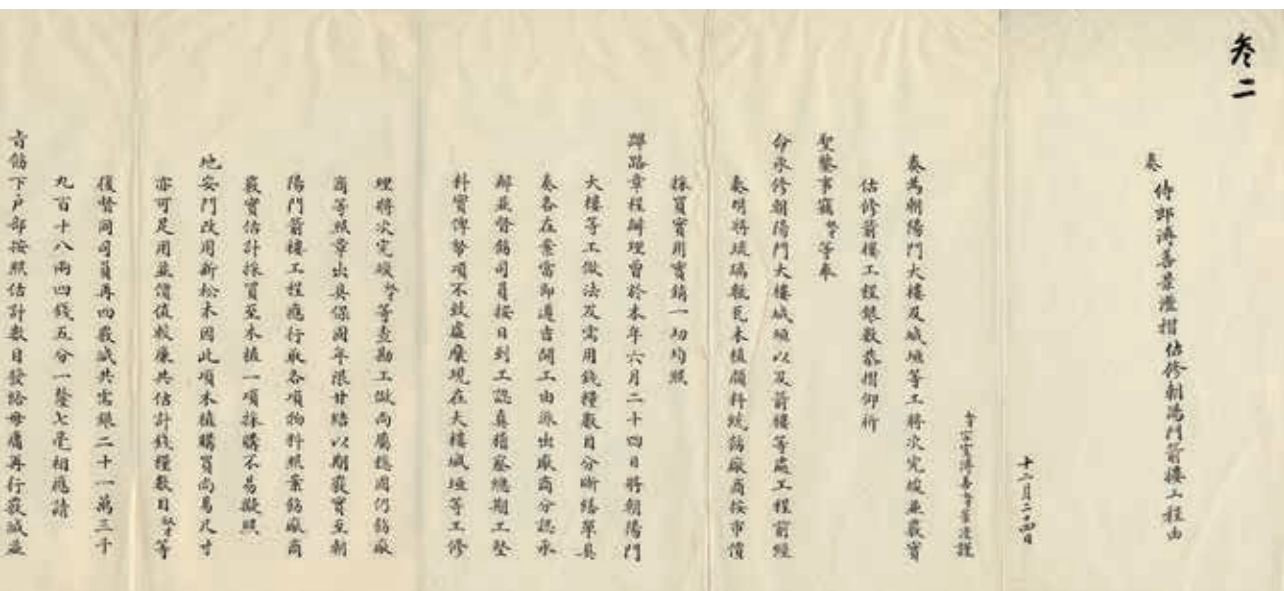 叁二
奏 侍郎濟善景灃摺估修朝陽門箭樓工程由
十二月二十四日
奴才宗室溥善奴才景灃謹
奏為朝陽門大樓及城垣等工將次完竣並覈實
估修箭樓工程銀數恭摺仰祈
聖鑒事竊奴才等奉
命承修朝陽門大樓城垣以及箭樓等處工程前經
奏明將琉璃瓶瓦木植顏料統飭廠商按市價
採買實用實銷一切均照
蹕路章程辦理曾於本年六月二十四日將朝陽門
大樓等工做法及需用錢糧數目分晰繕單具
奏各在案當即遵旨開工由派出廠商分認承
辦並督飭司員按日到工認真稽察總期工堅
料實俾帑項不致虛糜現在大樓城垣等工修
理將次完竣奴才等查勘工做尚屬穩固仍飭廠
商等照章出具保固年限甘結以期覈實至朝
陽門箭樓工程應行取各項物料照案飭廠商
覈實估計採買至木植一項採購不易擬照
地安門改用新松木因此項木植購買尚易尺寸
亦可足用並價值較廉共估計錢糧數目奴才等
復督同司員再四覈減共需銀二十一萬三千
九百十八兩四錢五分一釐七毫相應請
旨飭下戶部按照估計數目發給毋庸再行覈減並